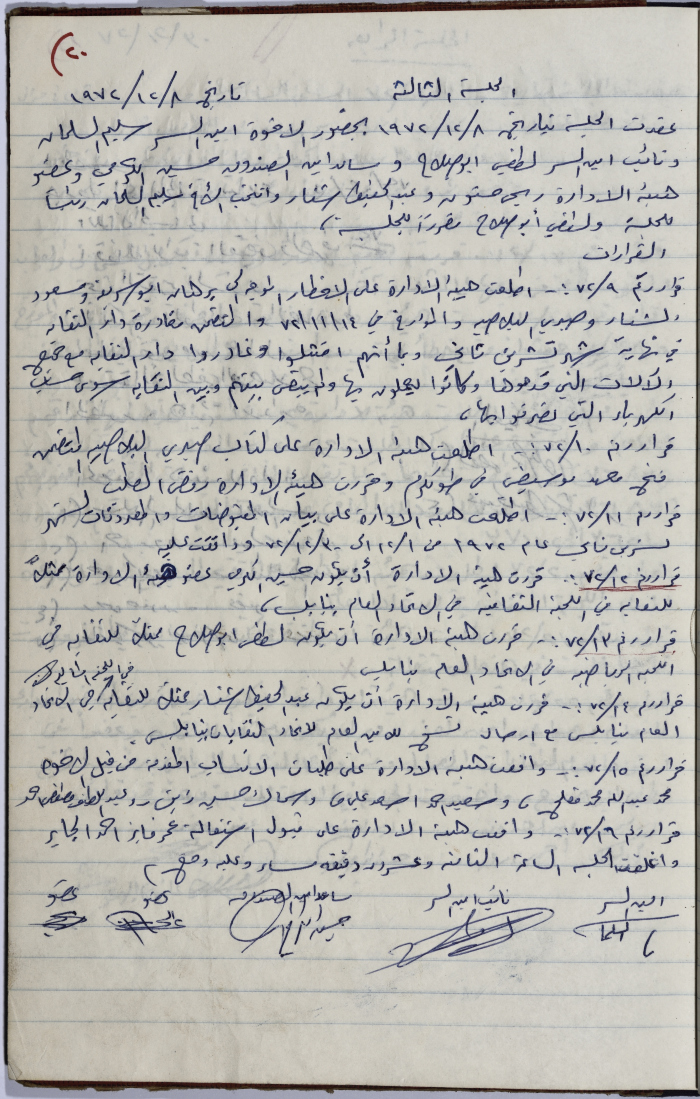 (٢٠
الجلسة الثالثة تاريخ ٨/١٢/١٩٧٢
عقدت الجلسة بتاريخ ٨/١٢/١٩٧٢ بحضور الاخوة امين السر سليم السلمان
ونائب امين السر لطفي ابو صلاح و ساعد امين الصندوق حسين الكرمي وعضو
هيئة الادارة ربحي حسون وعبد الحفيظ اشنار وانتخب الأخ سليم السلمان رئيسا
للجلسة ولطفي أبو صلاح مقررا للجلسة ،
القرارات
قرار رقم ٩/٧٢ :- اطلعت هيئة الادارة على الاخطار الموجه الى برهان ابو شريف ومسعود
اشنار وصبري البلاصي والمؤرخ في ١٤/١١/٧٢ والمتضمن مغادرة دار النقابة
في نهاية شهر تشرين ثاني وبأنهم امتثلوا وغادروا دار النقابة مع جميع
الآلات التي قدموها وكانوا يعملون بها ولم يبقى بينهم وبين النقابة سوى حساب
الكهرباء التي تصرفوا بها ،
قرار رقم ١٠/٧٢ :- اطلعت هيئة الادارة على كتاب صبري البلاصي المتضمن
فتح معهد في طولكرم وقررت هيئة الادارة رفض الطلب
قرار رقم ١١/٧٢ :- اطلعت هيئة الادارة على بيان المقبوضات والمدفوعات لشهر
تشرين ثاني عام ١٩٧٢ من ١/١٢ الى ٣٠/١٢/٧٢ ووافقت عليه
قرار رقم ١٢/٧٢ :- قررت هيئة الادارة أن يكون حسين الكرمي عضو هيئة الادارة ممثلاً
للنقابة في اللجنة الثقافية في الاتحاد العام بنابلس ،
قرار رقم ١٣/٧٢ :- قررت هيئة الادارة أن يكون لطفي ابو صلاح ممثلاً للنقابة في
اللجنة الرياضية في الاتحاد العام بنابلس
قرار رقم ١٤/٧٢ :- قررت هيئة الادارة أن يكون عبد الحفيظ اشنار ممثلاً للنقابة في الاتحاد
في اللجنة
العام بنابلس مع ارسال نسخ للامين العام لاتحاد النقابات بنابلس
قرار رقم ١٥/٧٢ :- وافقت هيئة الادارة على طلبات الانتساب المقدمة من قبل الاخوة
محمد عبد الله محمد مفلح ، وسعيد احمد اسعد وسمات حسين
قرار رقم ١٦/٧٢ :- وافقت هيئة الادارة على قبول استقالة عمر فايز احمد الجابر
واغلقت الجلسة الساعة الثامنة وعشرون دقيقه مساء وعليه وقع ،
امين السر نائب امين السر ساعد امين الصندوق عضو عضو